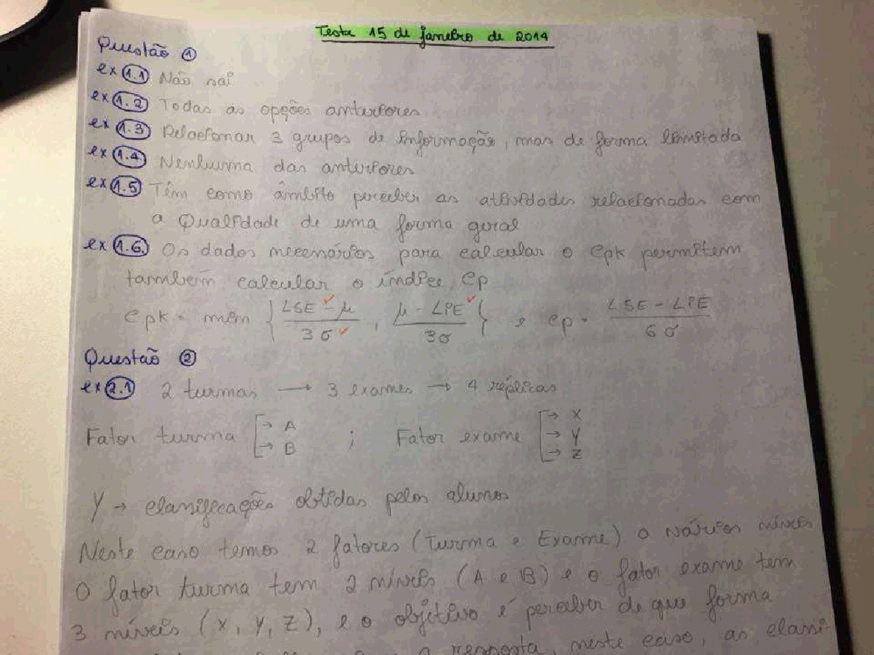 Teste 15 de janeiro de 2014
Questão 1
ex 1.1 Não sai
ex 1.2 Todas as opções anteriores
ex 1.3 Relacionar 3 grupos de informação, mas de forma limitada
ex 1.4 Nenhuma das anteriores
ex 1.5 Têm como âmbito perceber as atividades relacionadas com
a Qualidade de uma forma geral
ex 1.6. Os dados necessários para calcular o Cpk permitem
também calcular o índice Cp
Cpk = mín { LSE - μ / 3σ , μ - LIE / 3σ } e Cp = LSE - LIE / 6σ
Questão 2
ex 2.1 2 turmas → 3 exames → 4 réplicas
Fator turma → A → B ; Fator exame → X → Y → Z
Y → classificações obtidas pelos alunos
Neste caso temos 2 fatores (Turma e Exame) a vários níveis
O fator turma tem 2 níveis (A e B) e o fator exame tem
3 níveis (X, Y, Z), e o objetivo é perceber de que forma
a resposta, neste caso, as classi-